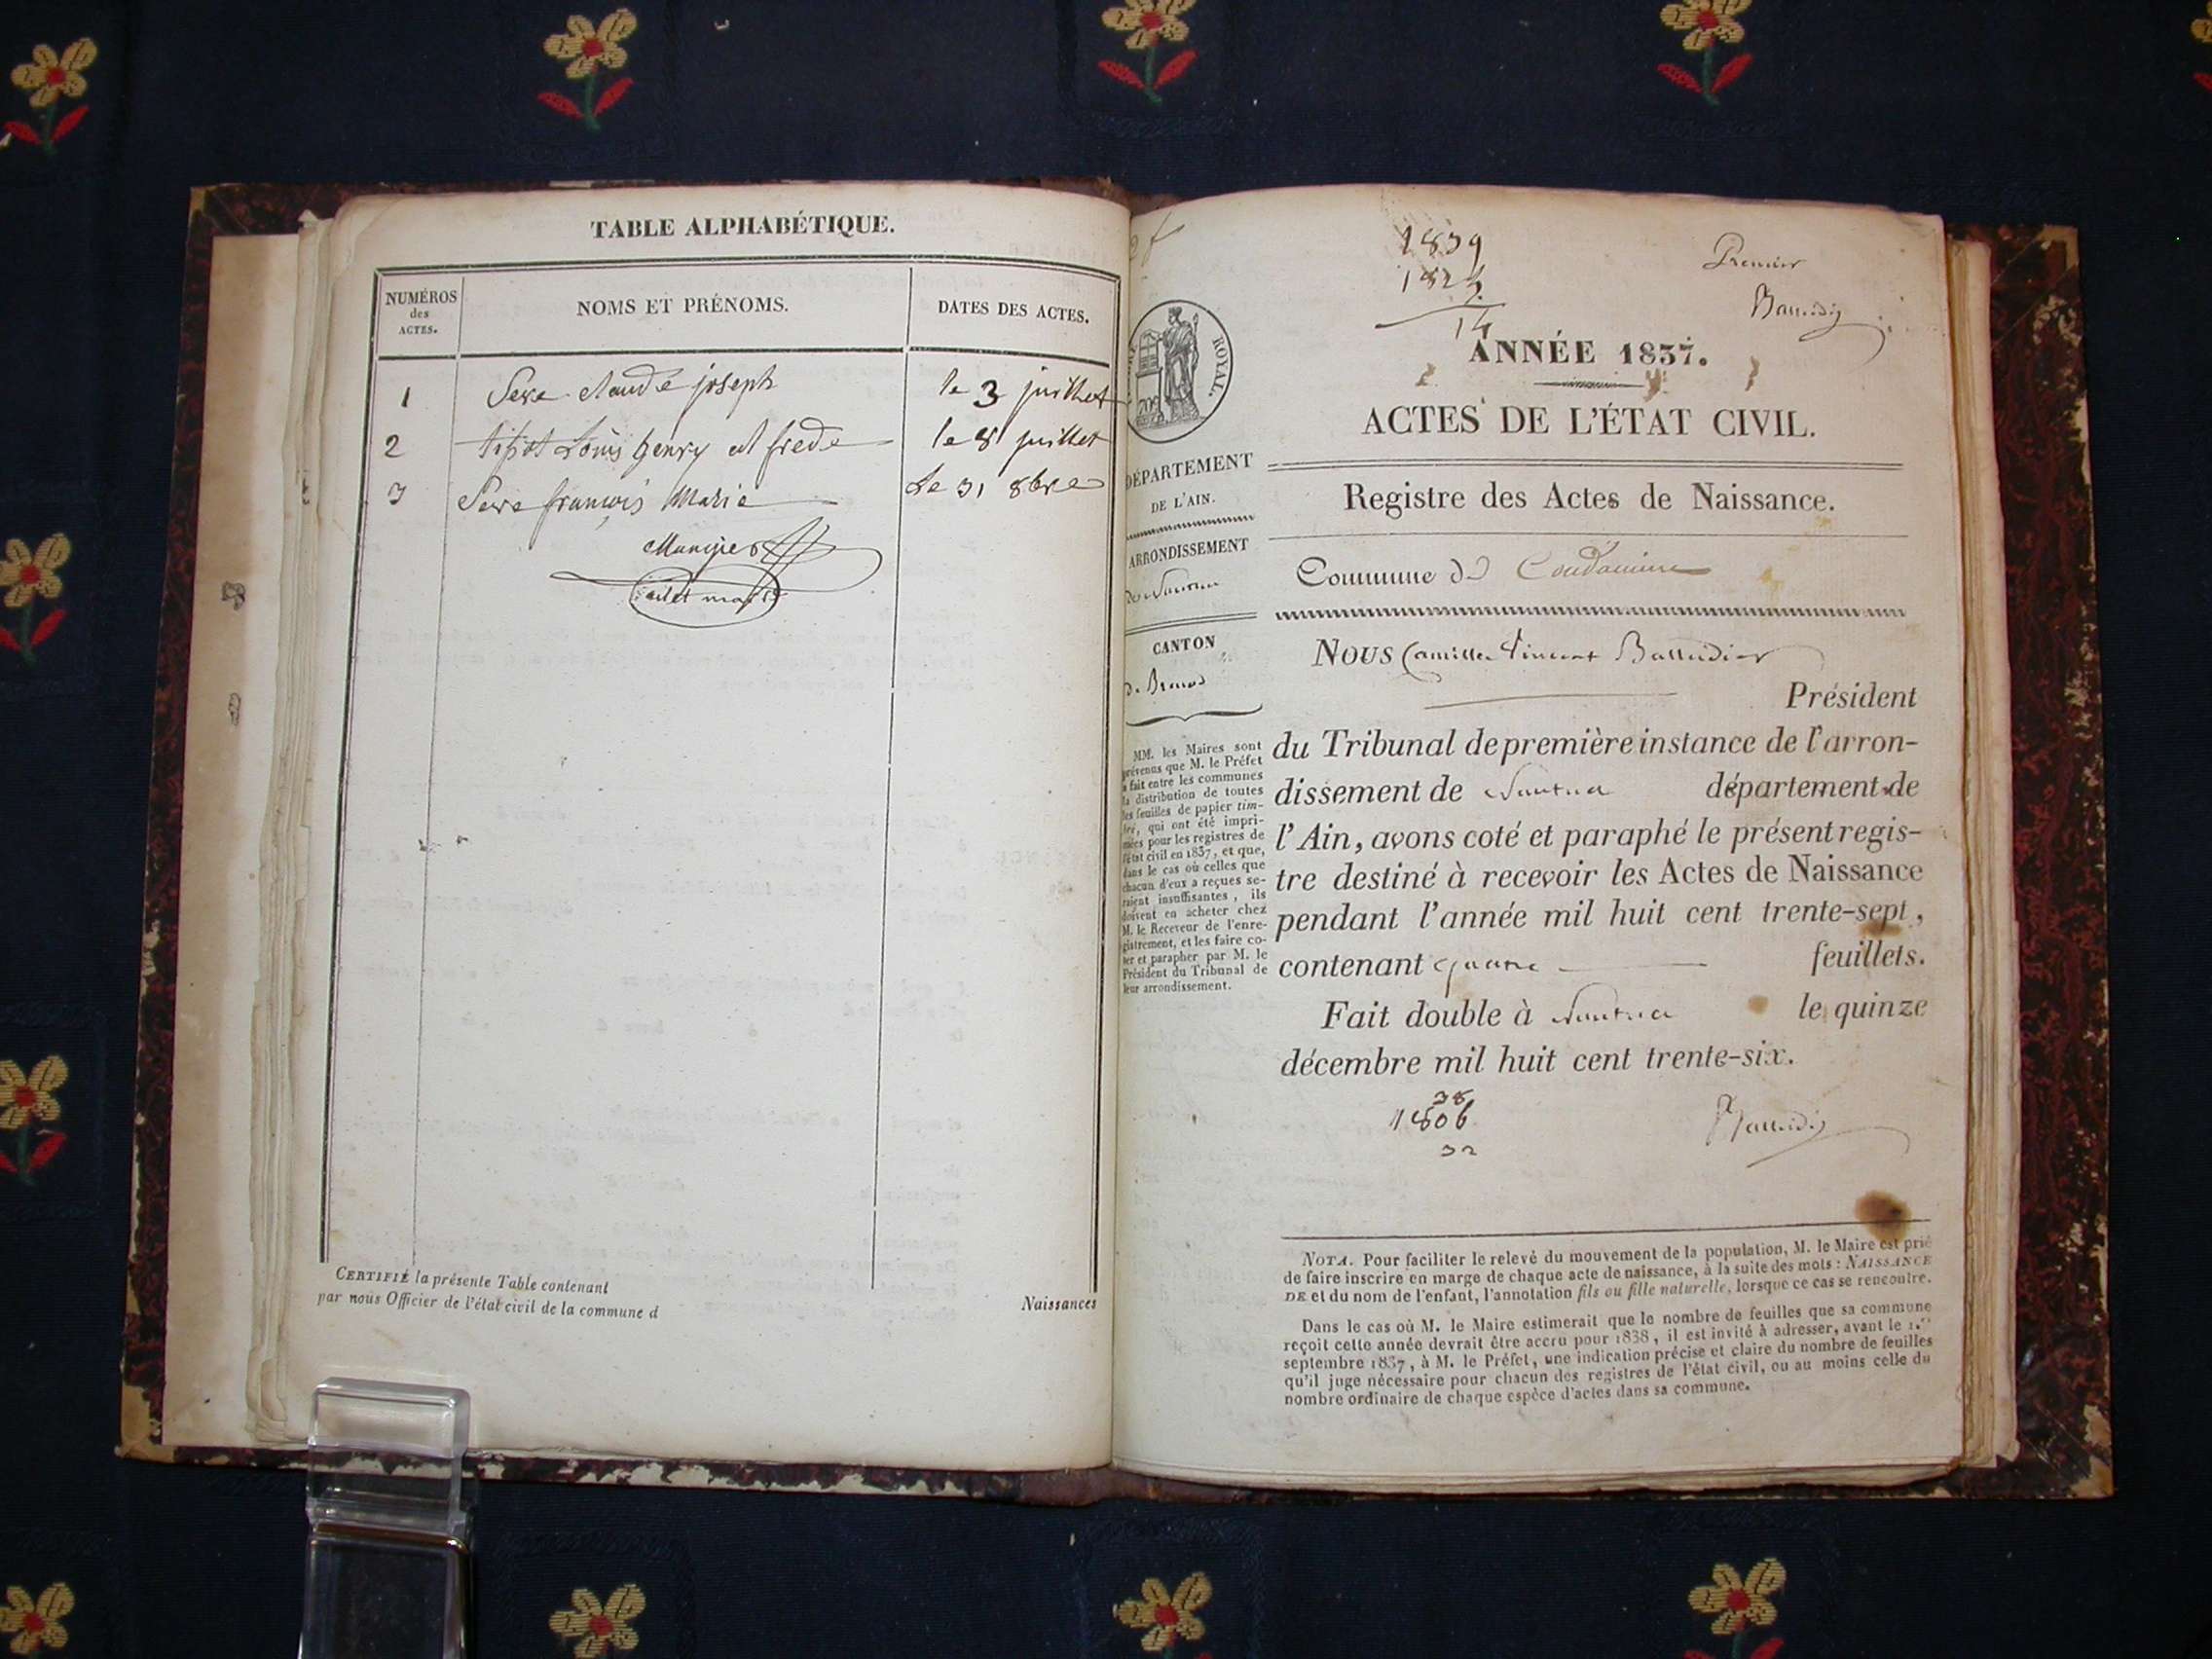 TABLE ALPHABÉTIQUE.
NUMÉROS
des
ACTES.
NOMS ET PRÉNOMS.
DATES DES ACTES.
1 Seve claude joseph le 3 juillet
2 Louis henry le 8 juillet
3 Seve francois Marie le 31 8bre
maire
CERTIFIÉ la présente Table contenant Naissances
par nous Officier de l'état civil de la commune d
1839
182
14
Premier
ANNÉE 1837.
ACTES DE L'ÉTAT CIVIL.
Registre des Actes de Naissance.
Commune de Condamine
ROYAL.
DÉPARTEMENT
DE L'AIN.
ARRONDISSEMENT
de Nantua
CANTON
de Brenod
MM. les Maires sont
prévenus que M. le Préfet
a fait entre les communes
la distribution de toutes
les feuilles de papier tim-
bré, qui ont été impri-
mées pour les registres de
l'état civil en 1837, et que,
dans le cas où celles que
chacun d'eux a reçues se-
raient insuffisantes, ils
doivent en acheter chez
M. le Receveur de l'enre-
gistrement, et les faire co-
ter et parapher par M. le
Président du Tribunal de
leur arrondissement.
NOUS Camille Vincent Balleidier
Président
du Tribunal de première instance de l'arron-
dissement de Nantua département de
l'Ain, avons coté et paraphé le présent regis-
tre destiné à recevoir les Actes de Naissance
pendant l'année mil huit cent trente-sept,
contenant quatre feuillets.
Fait double à Nantua le quinze
décembre mil huit cent trente-six.
38
1806
32
NOTA. Pour faciliter le relevé du mouvement de la population, M. le Maire est prié
de faire inscrire en marge de chaque acte de naissance, à la suite des mots : NAISSANCE
DE et du nom de l'enfant, l'annotation fils ou fille naturelle, lorsque ce cas se rencontre.
Dans le cas où M. le Maire estimerait que le nombre de feuilles que sa commune
reçoit cette année devrait être accru pour 1838, il est invité à adresser, avant le 1.er
septembre 1837, à M. le Préfet, une indication précise et claire du nombre de feuilles
qu'il juge nécessaire pour chacun des registres de l'état civil, ou au moins celle du
nombre ordinaire de chaque espèce d'actes dans sa commune.